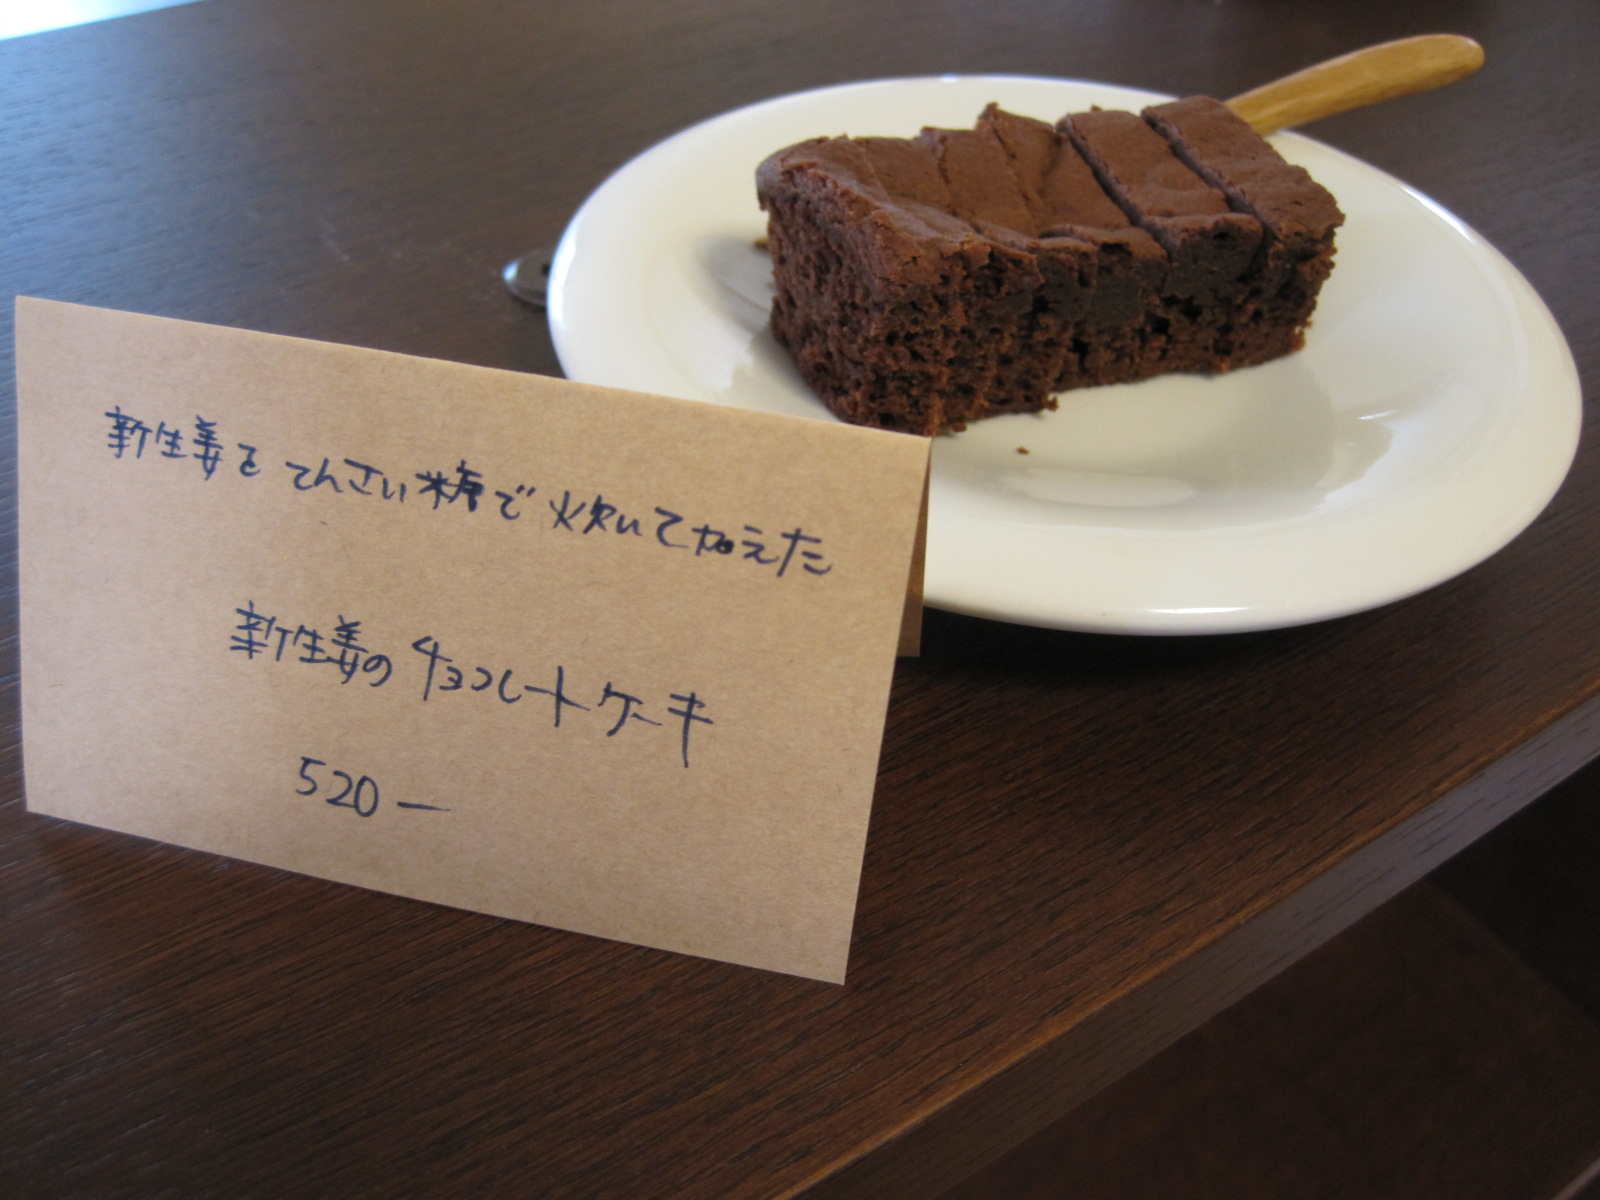 新生姜を てんさい糖で 炊いて加えた
新生姜の チョコレートケーキ
520ー